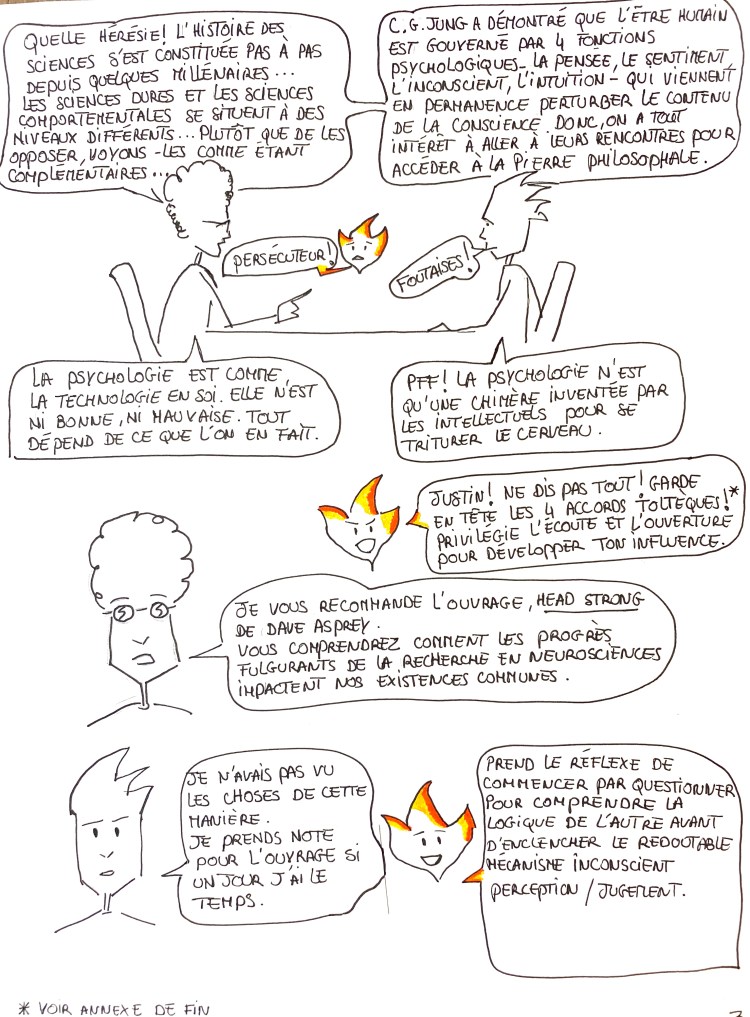 QUELLE HÉRÉSIE! L'HISTOIRE DES
SCIENCES S'EST CONSTITUÉE PAS À PAS
DEPUIS QUELQUES MILLÉNAIRES...
LES SCIENCES DURES ET LES SCIENCES
COMPORTEMENTALES SE SITUENT À DES
NIVEAUX DIFFÉRENTS... PLUTÔT QUE DE LES
OPPOSER, VOYONS-LES COMME ÉTANT
COMPLÉMENTAIRES...
C.G. JUNG A DÉMONTRÉ QUE L'ÊTRE HUMAIN
EST GOUVERNÉ PAR 4 FONCTIONS
PSYCHOLOGIQUES - LA PENSÉE, LE SENTIMENT,
L'INCONSCIENT, L'INTUITION - QUI VIENNENT
EN PERMANENCE PERTURBER LE CONTENU
DE LA CONSCIENCE. DONC, ON A TOUT
INTÉRÊT À ALLER À LEURS RENCONTRES POUR
ACCÉDER À LA PIERRE PHILOSOPHALE.
PERSÉCUTEUR!
FOUTAISES!
LA PSYCHOLOGIE EST COMME
LA TECHNOLOGIE EN SOI. ELLE N'EST
NI BONNE, NI MAUVAISE. TOUT
DÉPEND DE CE QUE L'ON EN FAIT.
PFF! LA PSYCHOLOGIE N'EST
QU'UNE CHIMÈRE INVENTÉE PAR
LES INTELLECTUELS POUR SE
TRITURER LE CERVEAU.
JUSTIN! NE DIS PAS TOUT! GARDE
EN TÊTE LES 4 ACCORDS TOLTÈQUES!*
PRIVILÉGIE L'ÉCOUTE ET L'OUVERTURE
POUR DÉVELOPPER TON INFLUENCE.
JE VOUS RECOMMANDE L'OUVRAGE, HEAD STRONG
DE DAVE ASPREY.
VOUS COMPRENDREZ COMMENT LES PROGRÈS
FULGURANTS DE LA RECHERCHE EN NEUROSCIENCES
IMPACTENT NOS EXISTENCES COMMUNES.
JE N'AVAIS PAS VU
LES CHOSES DE CETTE
MANIÈRE.
JE PRENDS NOTE
POUR L'OUVRAGE SI
UN JOUR J'AI LE
TEMPS.
PREND LE RÉFLEXE DE
COMMENCER PAR QUESTIONNER
POUR COMPRENDRE LA
LOGIQUE DE L'AUTRE AVANT
D'ENCLENCHER LE REDOUTABLE
MÉCANISME INCONSCIENT
PERCEPTION / JUGEMENT.
* VOIR ANNEXE DE FIN